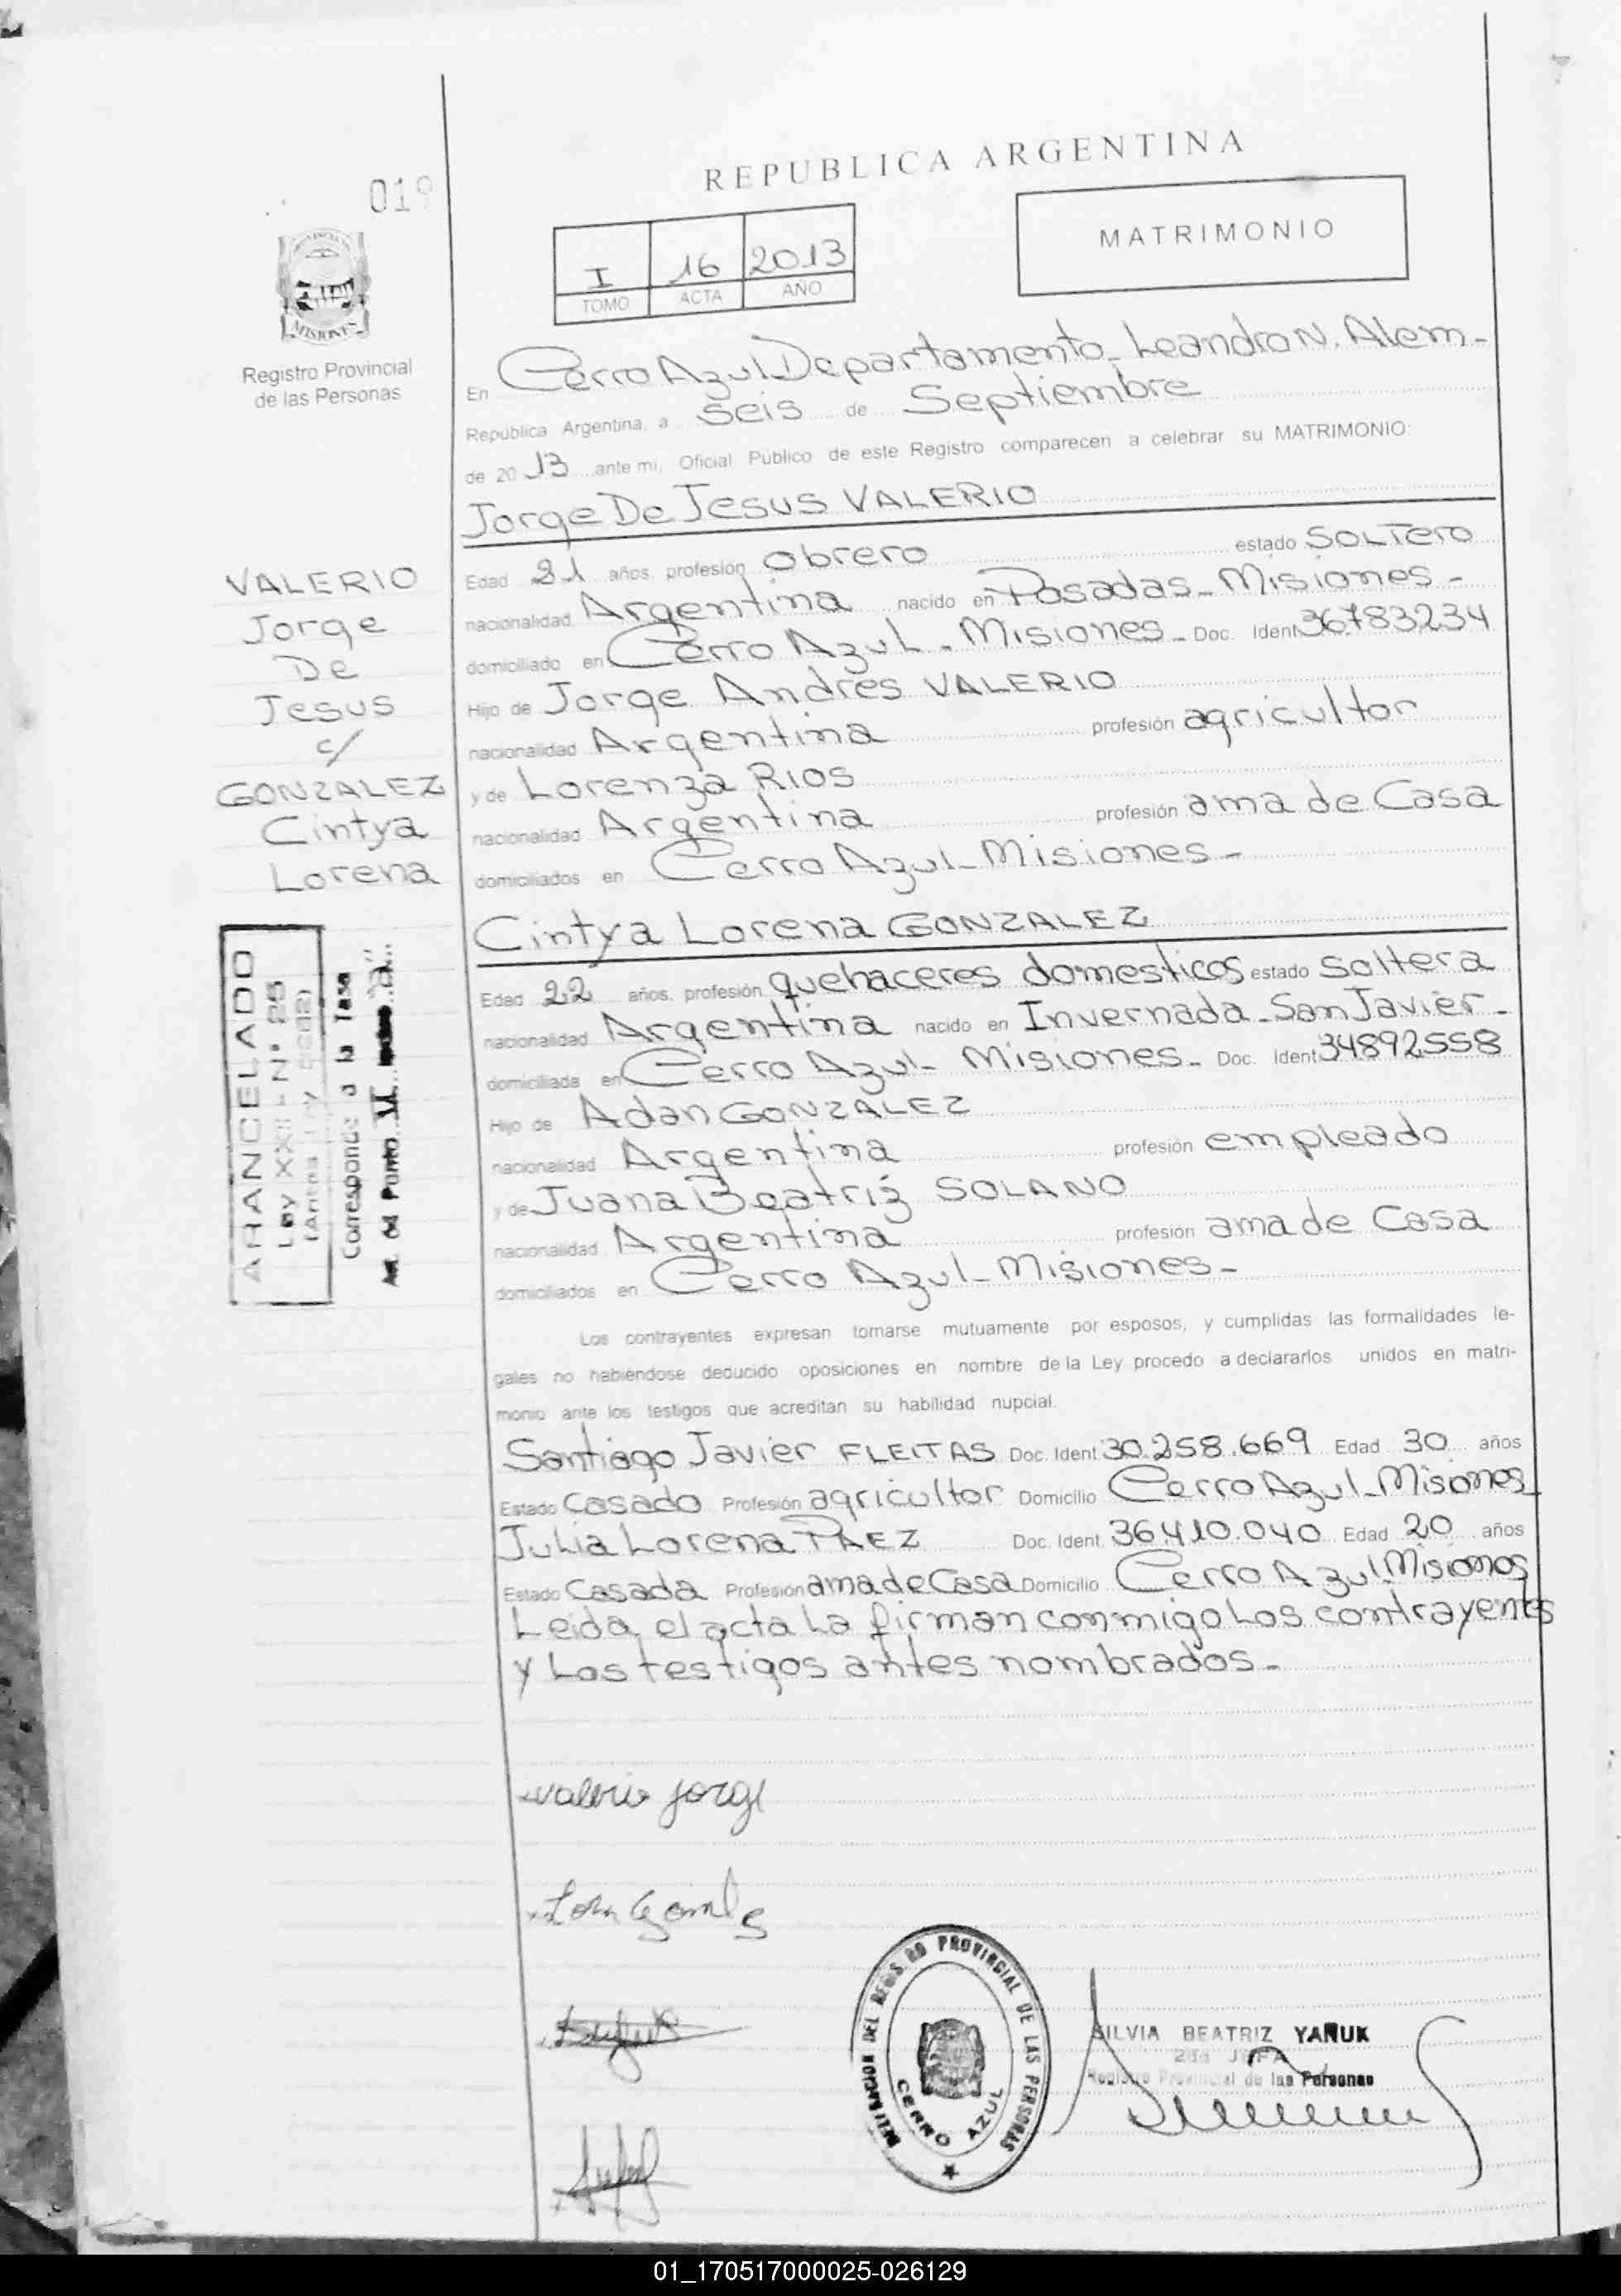 REPUBLICA ARGENTINA
019
MATRIMONIO
I 16 2013
TOMO ACTA AÑO
PROVINCIA DE
MISIONES
Registro Provincial
de las Personas
En Cerro Azul Departamento Leandro N. Alem-
República Argentina, a seis de Septiembre
de 2013 ante mi, Oficial Público de este Registro comparecen a celebrar su MATRIMONIO:
Jorge De Jesus VALERIO
Edad 21 años, profesión Obrero estado SOLTero
nacionalidad Argentina nacido en Posadas-Misiones-
domiciliado en Cerro Azul-Misiones- Doc. Ident 36783234
Hijo de Jorge Andres VALERIO
nacionalidad Argentina profesión agricultor
y de Lorenza RIOS
nacionalidad Argentina profesión ama de Casa
domiciliados en Cerro Azul-Misiones-
VALERIO
Jorge
De
Jesus
c/
GONZALEZ
Cintya
Lorena
Cintya Lorena GONZALEZ
Edad 22 años, profesión quehaceres domesticos estado soltera
nacionalidad Argentina nacido en Invernada-San Javier-
domiciliada en Cerro Azul-Misiones- Doc. Ident 34892558
Hijo de Adan GONZALEZ
nacionalidad Argentina profesión empleado
y de Juana Beatriz SOLANO
nacionalidad Argentina profesión ama de Casa
domiciliados en Cerro Azul-Misiones-
ARANCELADO
Ley XXII-Nº 25
(Antes Ley
Corresponde a la Tasa
Art. 6d Punto VI "a"
Los contrayentes expresan tomarse mutuamente por esposos, y cumplidas las formalidades le-
gales no habiéndose deducido oposiciones en nombre de la Ley procedo a declararlos unidos en matri-
monio ante los testigos que acreditan su habilidad nupcial.
Santiago Javier FLEITAS Doc. Ident 30.258.669 Edad 30 años
Estado Casado Profesión agricultor Domicilio Cerro Azul-Misiones
Julia Lorena PAEZ Doc. Ident. 36.410.040 Edad 20 años
Estado Casada Profesión ama de Casa Domicilio Cerro Azul Misiones
Leida el acta La firman conmigo Los contrayentes
y Los testigos antes nombrados-
Valerio Jorge
DELEGACION DEL REGISTRO PROVINCIAL DE LAS PERSONAS
CERRO AZUL
SILVIA BEATRIZ YANUK
2da JEFA
Registro Provincial de las Personas
01_170517000025-026129